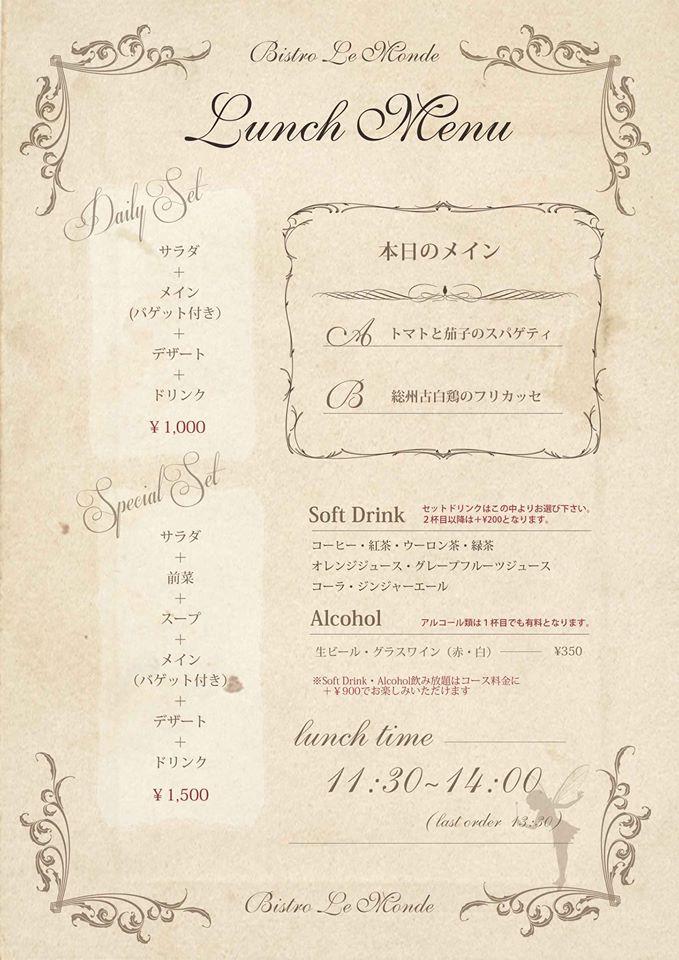 Bistro Le Monde
Lunch Menu
Daily Set
サラダ
+
メイン
(バゲット付き)
+
デザート
+
ドリンク
¥1,000
本日のメイン
A トマトと茄子のスパゲティ
B 総州古白鶏のフリカッセ
Special Set
サラダ
+
前菜
+
スープ
+
メイン
(バゲット付き)
+
デザート
+
ドリンク
¥1,500
Soft Drink
セットドリンクはこの中よりお選び下さい。
2杯目以降は+¥200となります。
コーヒー・紅茶・ウーロン茶・緑茶
オレンジジュース・グレープフルーツジュース
コーラ・ジンジャーエール
Alcohol アルコール類は1杯目でも有料となります。
生ビール・グラスワイン(赤・白) ¥350
※Soft Drink・Alcohol飲み放題はコース料金に
+¥900でお楽しみいただけます
lunch time
11:30~14:00
(last order 13:30)
Bistro Le Monde